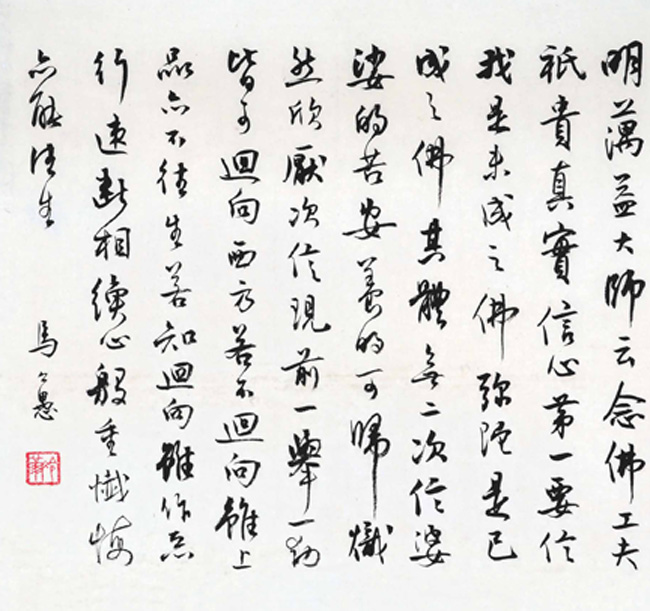 明蕅益大師云念佛工夫
祇貴真實信心第一要信
我是未成之佛弥陀是已
成之佛其體無二次信娑
婆的苦安養的可歸熾
然欣厭次信現前一舉一動
皆可迴向西方若不迴向雖上
品亦不往生若知迴向雖作惡
行速斷相續心殷重懺悔
亦能往生
馬公愚